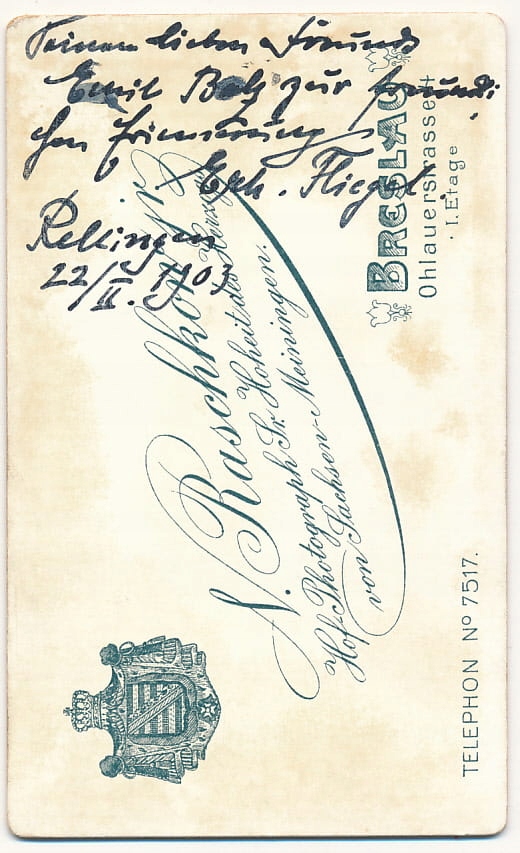 Seinem lieben Freunde
Emil zur freundli-
chen Erinnerung
Eph. Fliegel.
Rellingen
22/II. 1903
N. Raschkow jr.
Hof-Photograph Sr. Hoheit des Herzogs
von Sachsen-Meiningen.
BRESLAU
Ohlauerstrasse 4
I. Etage
TELEPHON Nº 7517.